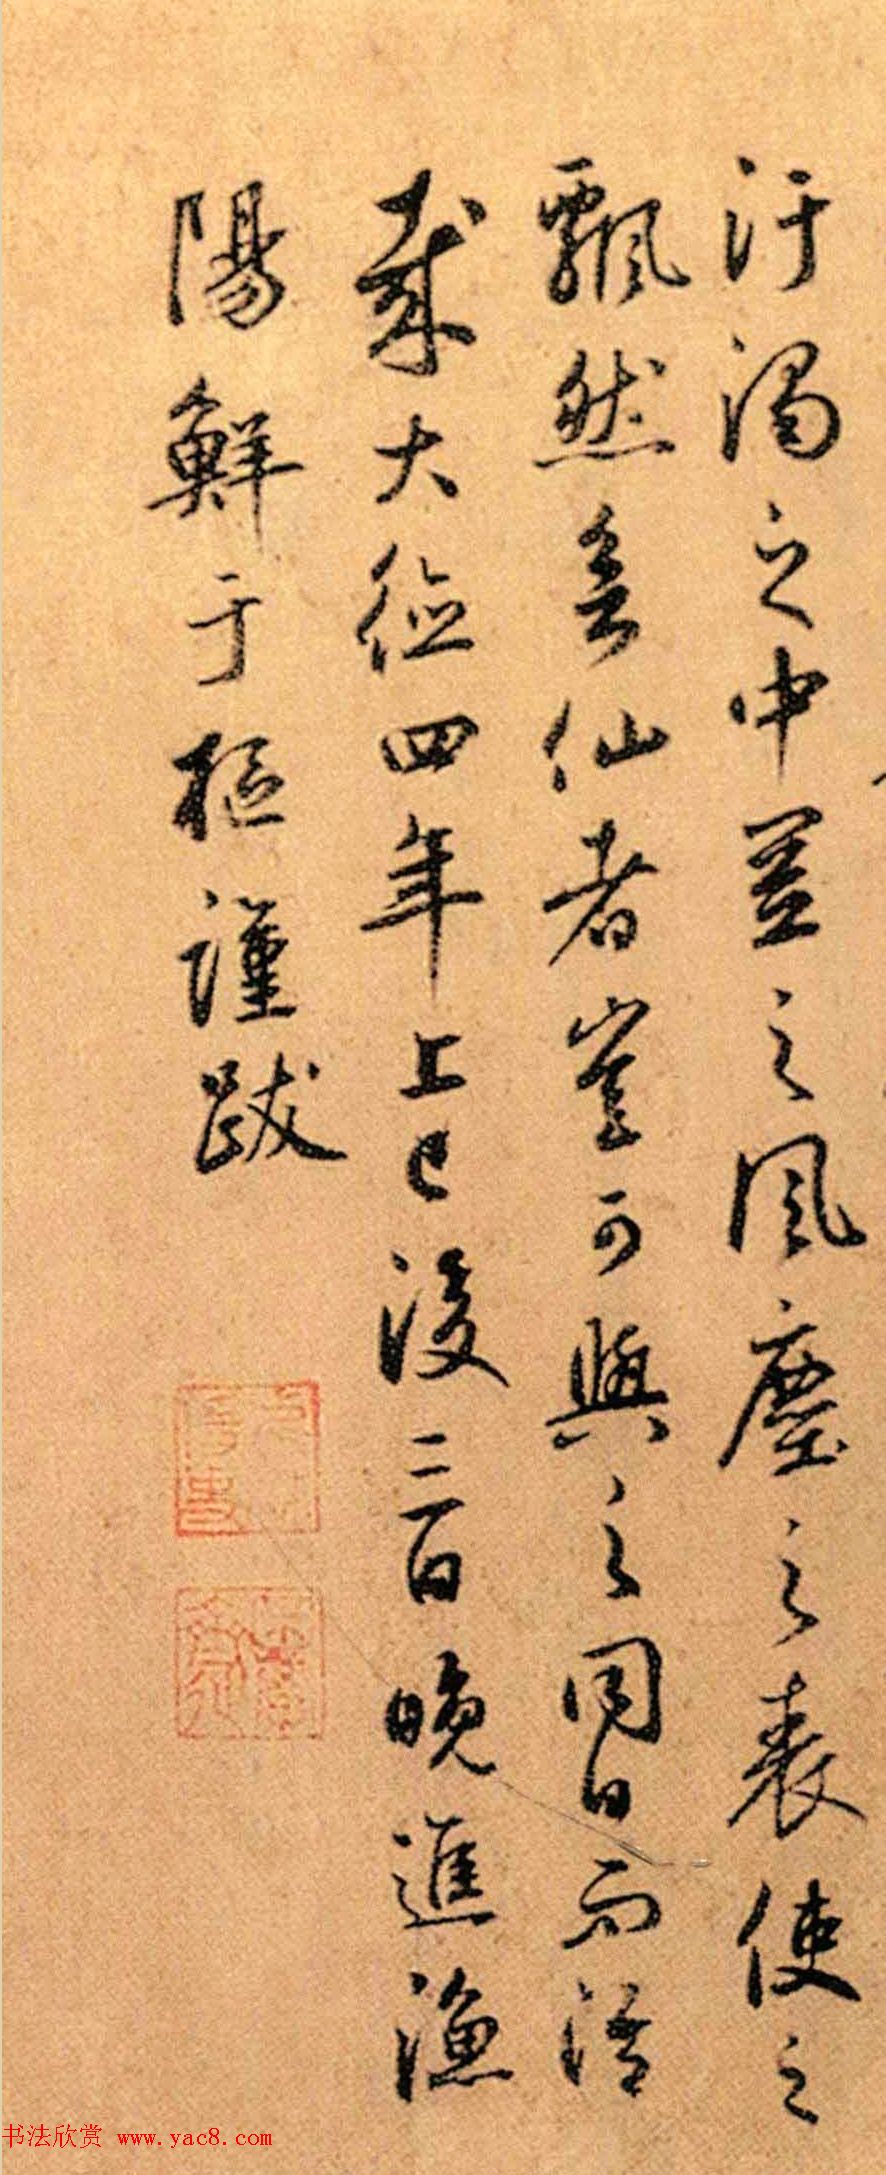 汙濁之中置之風塵之表使之
飄然登仙者豈可與之同日而語
哉大德四年上巳後三日晚進漁
陽鮮于樞謹跋
书法欣赏 www.yac8.com